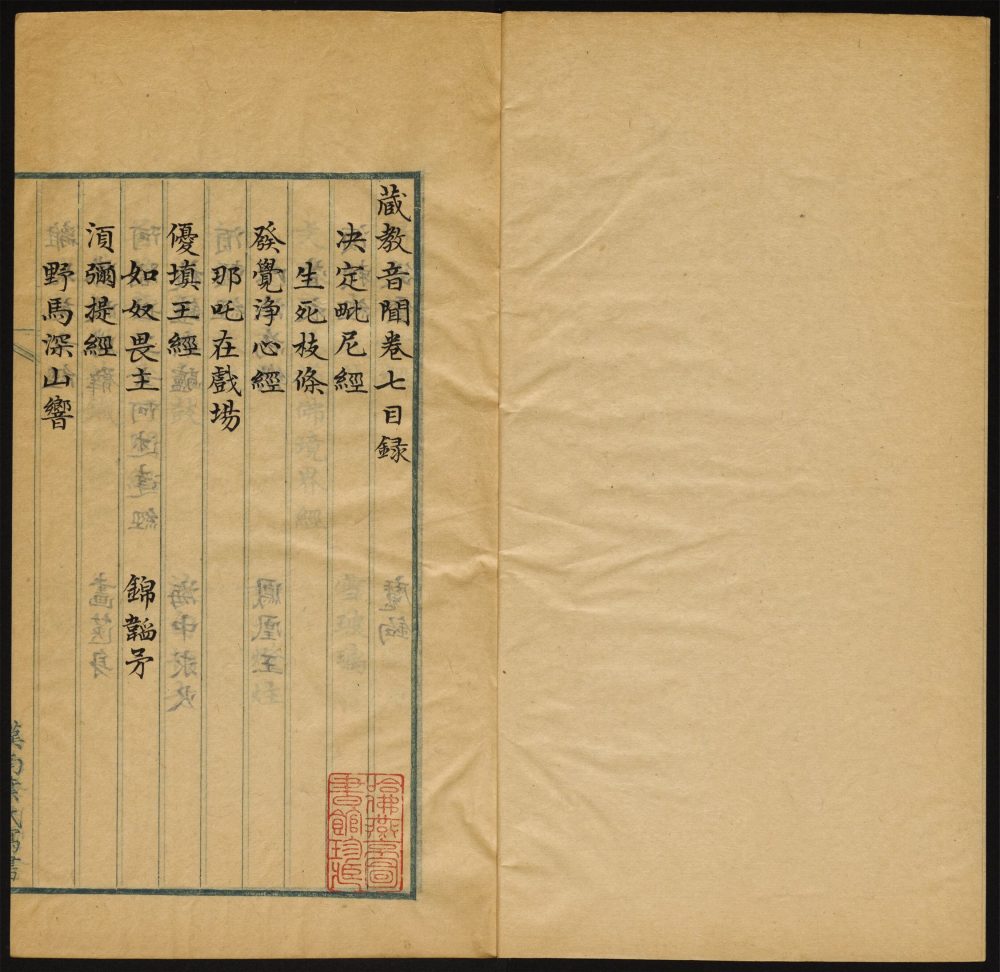 蔵教音聞卷七目録
决定毗尼經
生死枝條
發覺浄心經
那吒在戲場
優填王經
如奴畏主 錦韜矛
湏彌提經
野馬深山響
哈佛燕京圖
書館珍藏